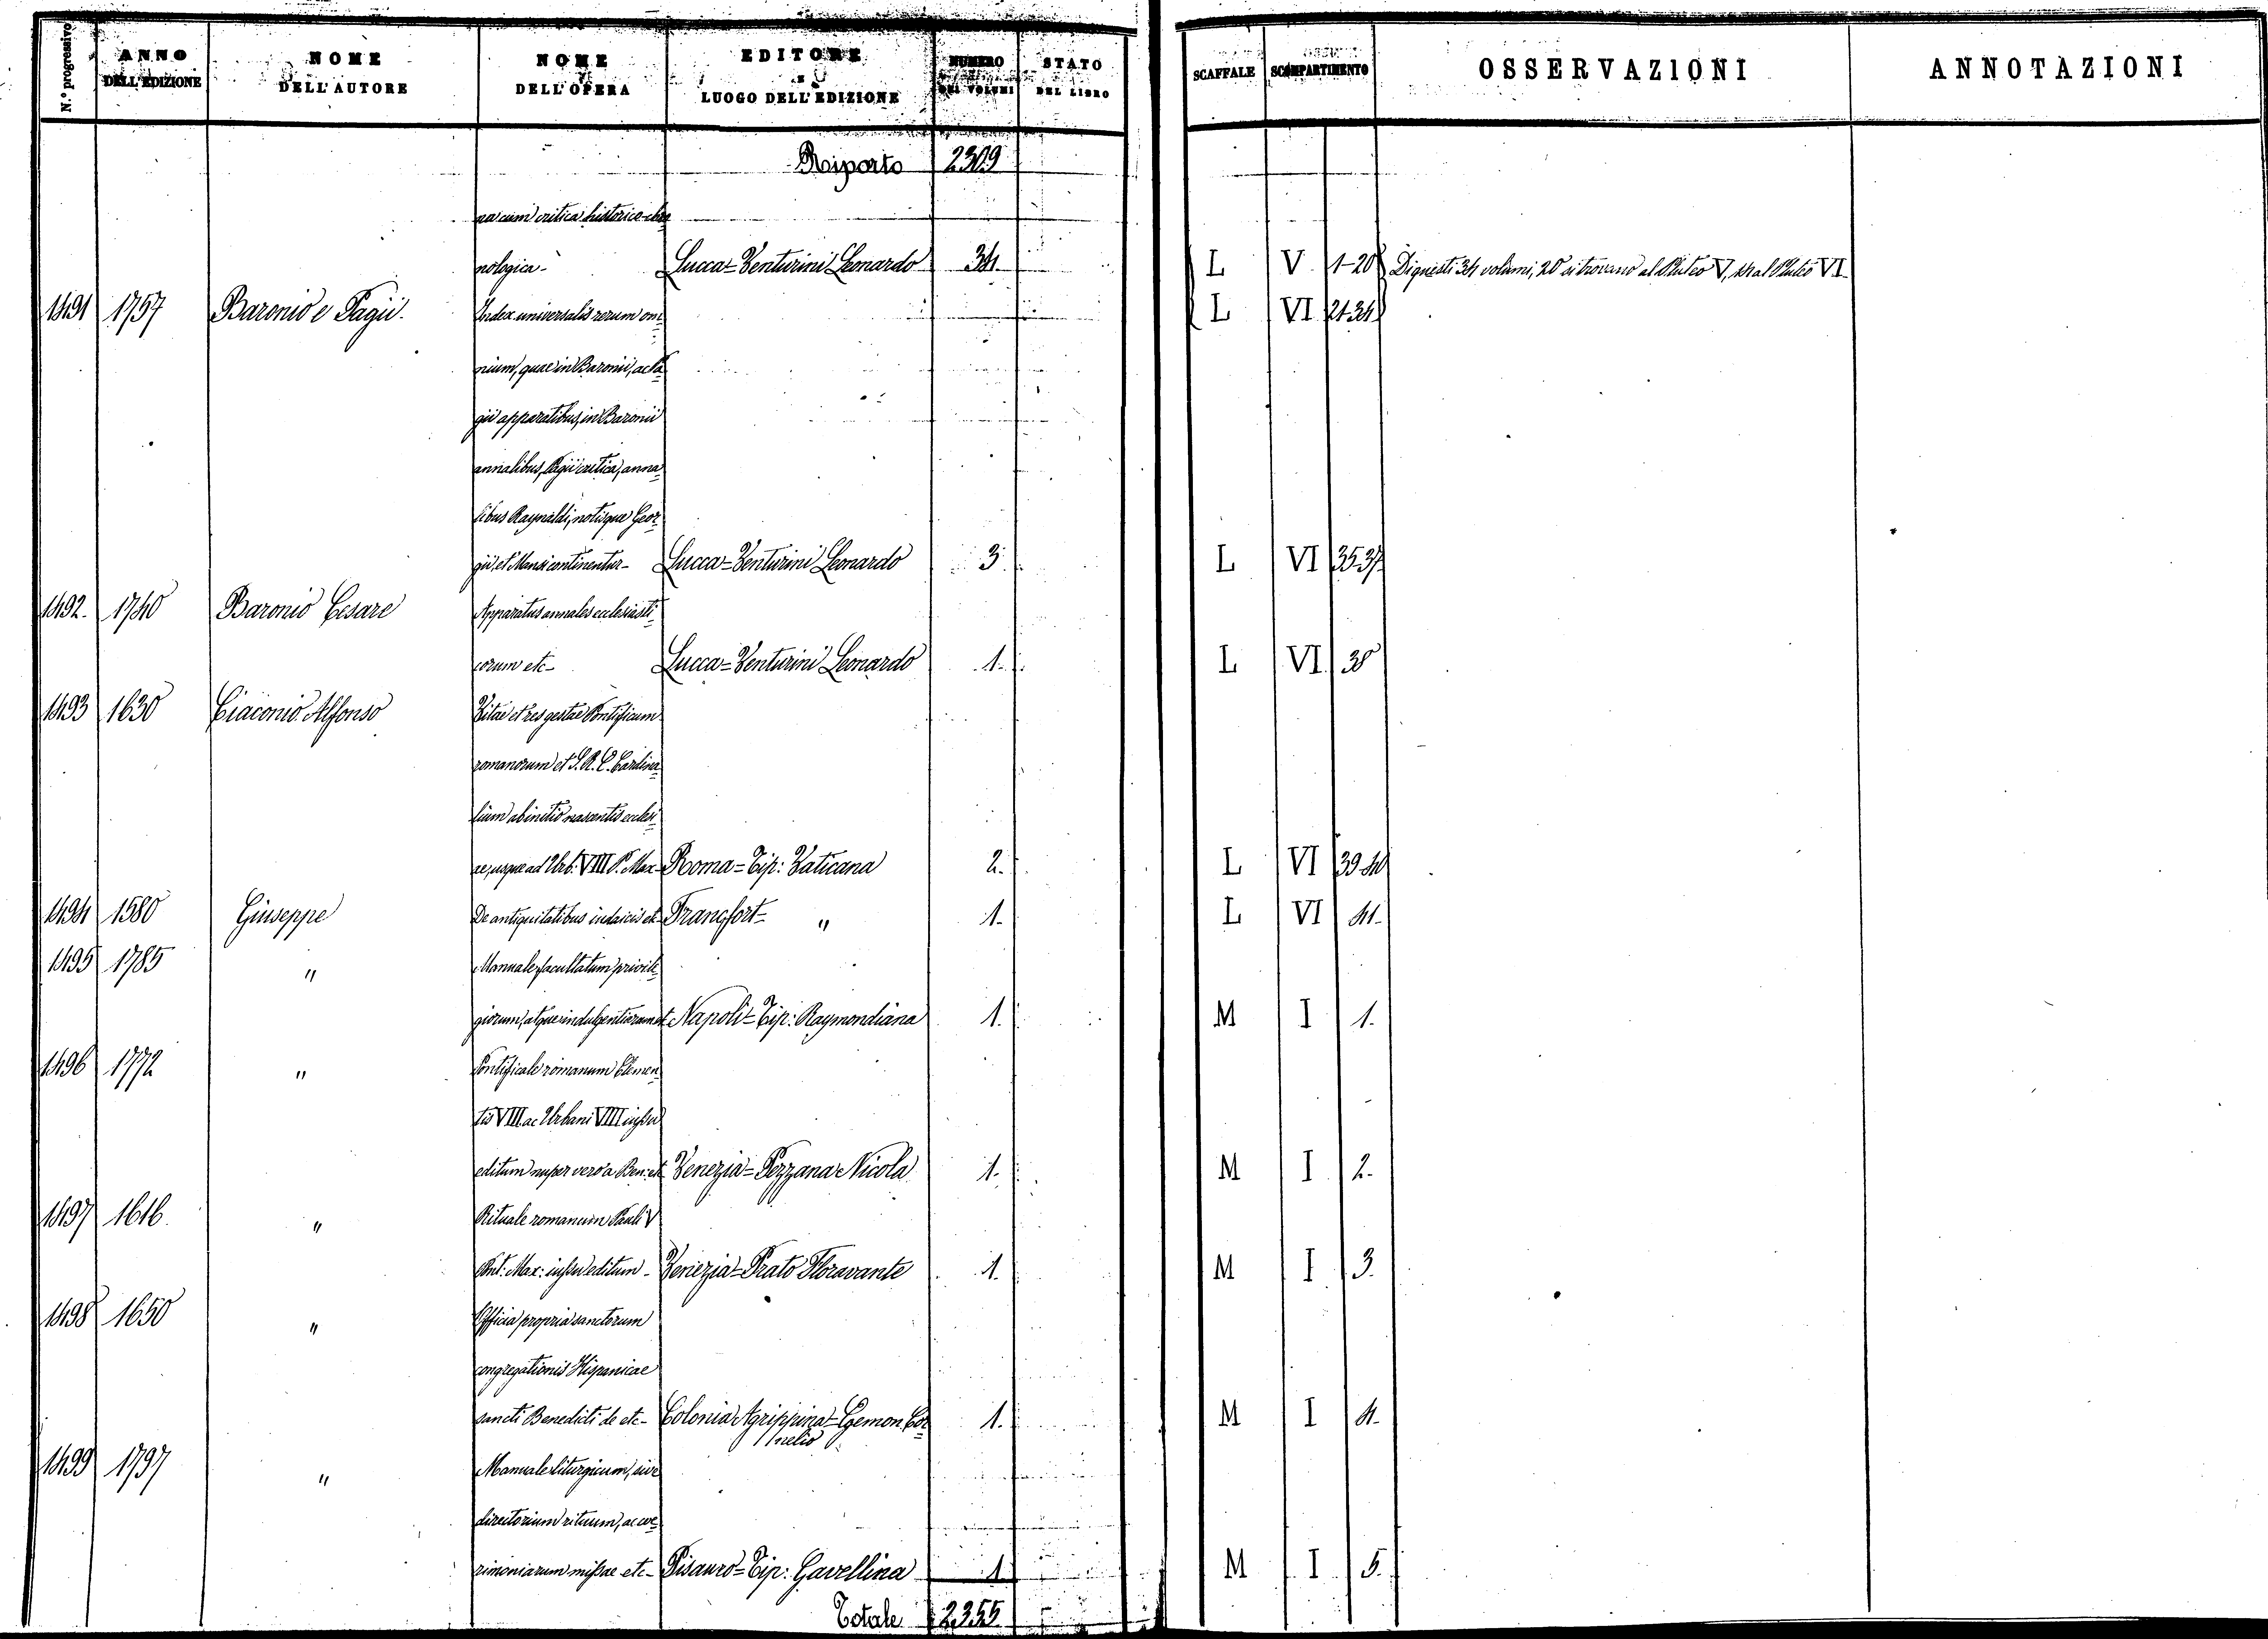 N.° progressivo | ANNO DELL'EDIZIONE | NOME DELL'AUTORE | NOME DELL'OPERA | EDITORE E LUOGO DELL'EDIZIONE | NUMERO DEI VOLUMI | STATO DEL LIBRO | SCAFFALE | SCOMPARTIMENTO | OSSERVAZIONI | ANNOTAZIONI
Riporto 2309
na cum critica historico-chro
nologica- Lucca=Venturini Leonardo 34. L V 1-20 Di questi 34 volumi, 20 si trovano al Pluteo V, 14 al Pluteo VI
1491 1757 Baronio e Pagii. Index universalis rerum om= L VI 21-34
nium, quae in Baronii, ac Pa=
gii apparatibus, in Baronii
annalibus, Pagii critica, anna=
libus Raynaldi, notisque Geor=
gii, et Mansi continentur- Lucca=Venturini Leonardo 3. L VI 35-37.
1492. 1740 Baronio Cesare Apparatus annales ecclesiasti=
corum etc- Lucca=Venturini Leonardo 1. L VI 38
1493 1630 Ciaconio Alfonso Vitae et res gestae Pontificum
romanorum et S. R. E. Cardina=
lium ab initio nascentis eccles=
ae, usque ad Urb: VIII P. Max- Roma=Tip: Vaticana 2. L VI 39-40
1494 1580 Giuseppe De antiquitatibus iudaicis etc Francfort= " 1. L VI 41.
1495 1785 " Manuale facultatum privile=
giorum, atque indulgentiarum et Napoli=Tip: Raymondiana 1. M I 1.
1496 1772 " Pontificale romanum Clemen=
tis VIII ac Urbani VIII iussu
editum nuper vero a Ben: etc Venezia=Pezzana Nicola 1. M I 2.
1497 1616. " Rituale romanum Pauli V
Pont: Max: iussu editum- Venezia=Prato Floravante 1. M I 3.
1498 1650 " Officia propria sanctorum
congregationis Hispanicae
sancti Benedicti de etc- Colonia Agrippina=Egemon Cor= 1. M I 4.
nelio
1499 1797 " Manuale liturgicum, sive
directorium rituum, ac cae=
rimoniarum missae etc- Pisauro=Tip: Gavellina 1 M I 5.
Totale 2355